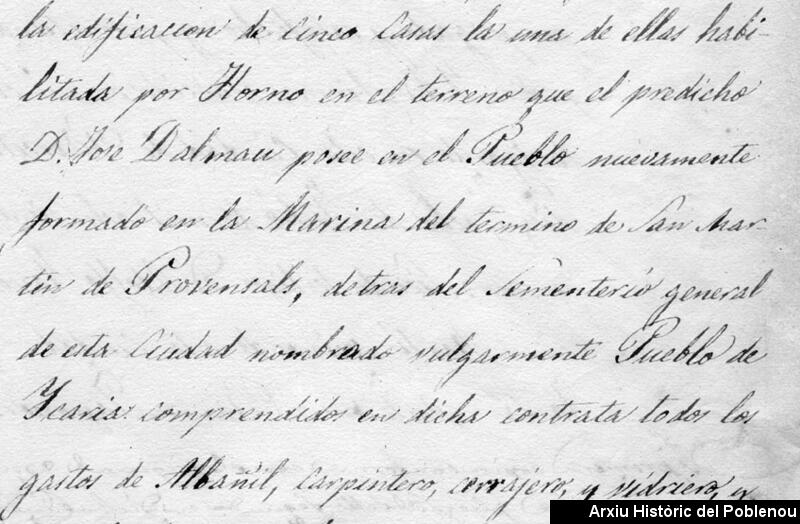 la edificacion de cinco Casas la una de ellas habi-
litada por Horno en el terreno que el predicho
D. Jose Dalmau posee en el Pueblo nuevamente
formado en la Marina del termino de San Mar-
tin de Provensals, detras del Sementerio general
de esta Ciudad nombrado vulgarmente Pueblo de
Ycaria: comprendidos en dicha contrata todos los
gastos de Albañil, Carpintero, cerrajero, y vidriero, y
Arxiu Històric del Poblenou